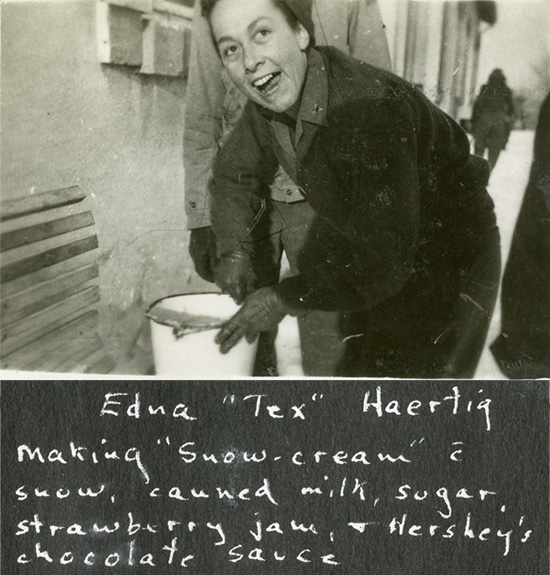 Edna "Tex" Haertig
making "Snow-cream" c̄
snow, canned milk, sugar,
strawberry jam, + Hershey's
chocolate sauce